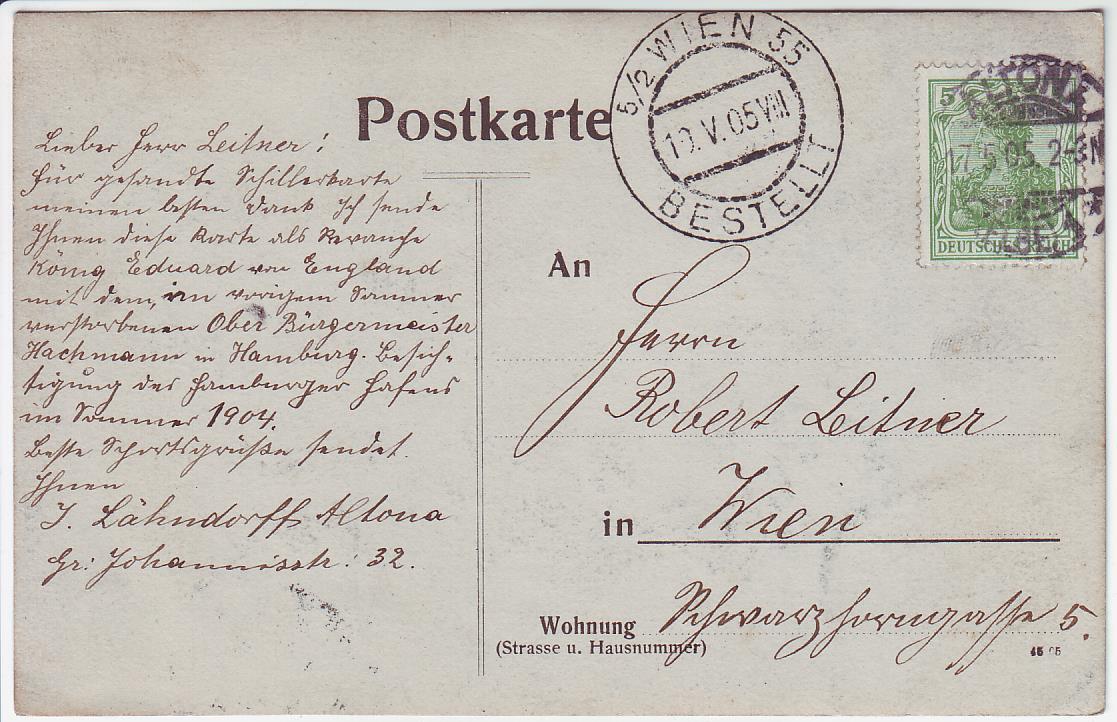 Postkarte
5/2 WIEN 55
19.V.05 VIII
BESTELLT
5
ALTONA
17.5.05. 2-3N
(ELBE)
DEUTSCHES REICH
Lieber Herr Leitner!
für gesandte Schillerkarte
meinen besten Dank Ich sende
Ihnen diese Karte als Revanche
König Eduard von England
mit dem, im vorigem Sommer
verstorbenen Ober Bürgermeister
Hachmann in Hamburg. Besich-
tigung des Hamburger Hafens
im Sommer 1904.
Beste Sportsgrüße sendet
Ihnen
J. Lähndorff Altona
Gr: Johannisstr: 32.
An
Herrn
Robert Leitner
in Wien
Wohnung Schwarzhorngasse 5.
(Strasse u. Hausnummer)